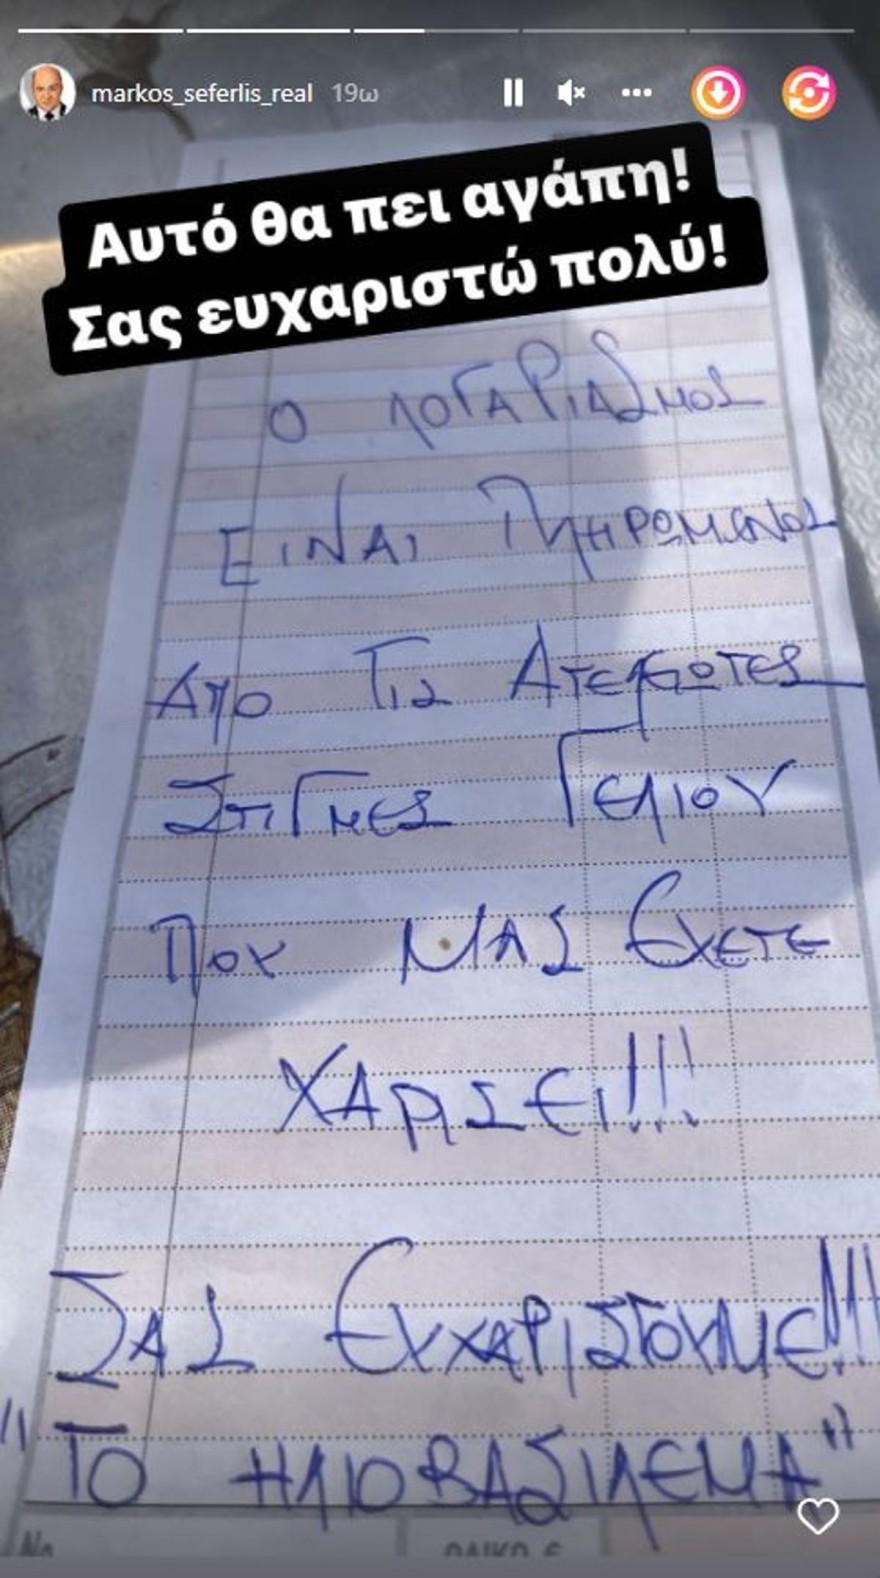 markos_seferlis_real 19ω
Αυτό θα πει αγάπη!
Σας ευχαριστώ πολύ!
Ο ΛΟΓΑΡΙΑΣΜΟΣ
ΕΙΝΑΙ ΠΛΗΡΩΜΕΝΟΣ
ΑΠΟ ΤΙΣ ΑΤΕΛΕΙΩΤΕΣ
ΣΤΙΓΜΕΣ ΓΕΛΙΟΥ
ΠΟΥ ΜΑΣ ΕΧΕΤΕ
ΧΑΡΙΣΕΙ!!!
ΣΑΣ ΕΥΧΑΡΙΣΤΟΥΜΕ!!!
"ΤΟ ΗΛΙΟΒΑΣΙΛΕΜΑ"